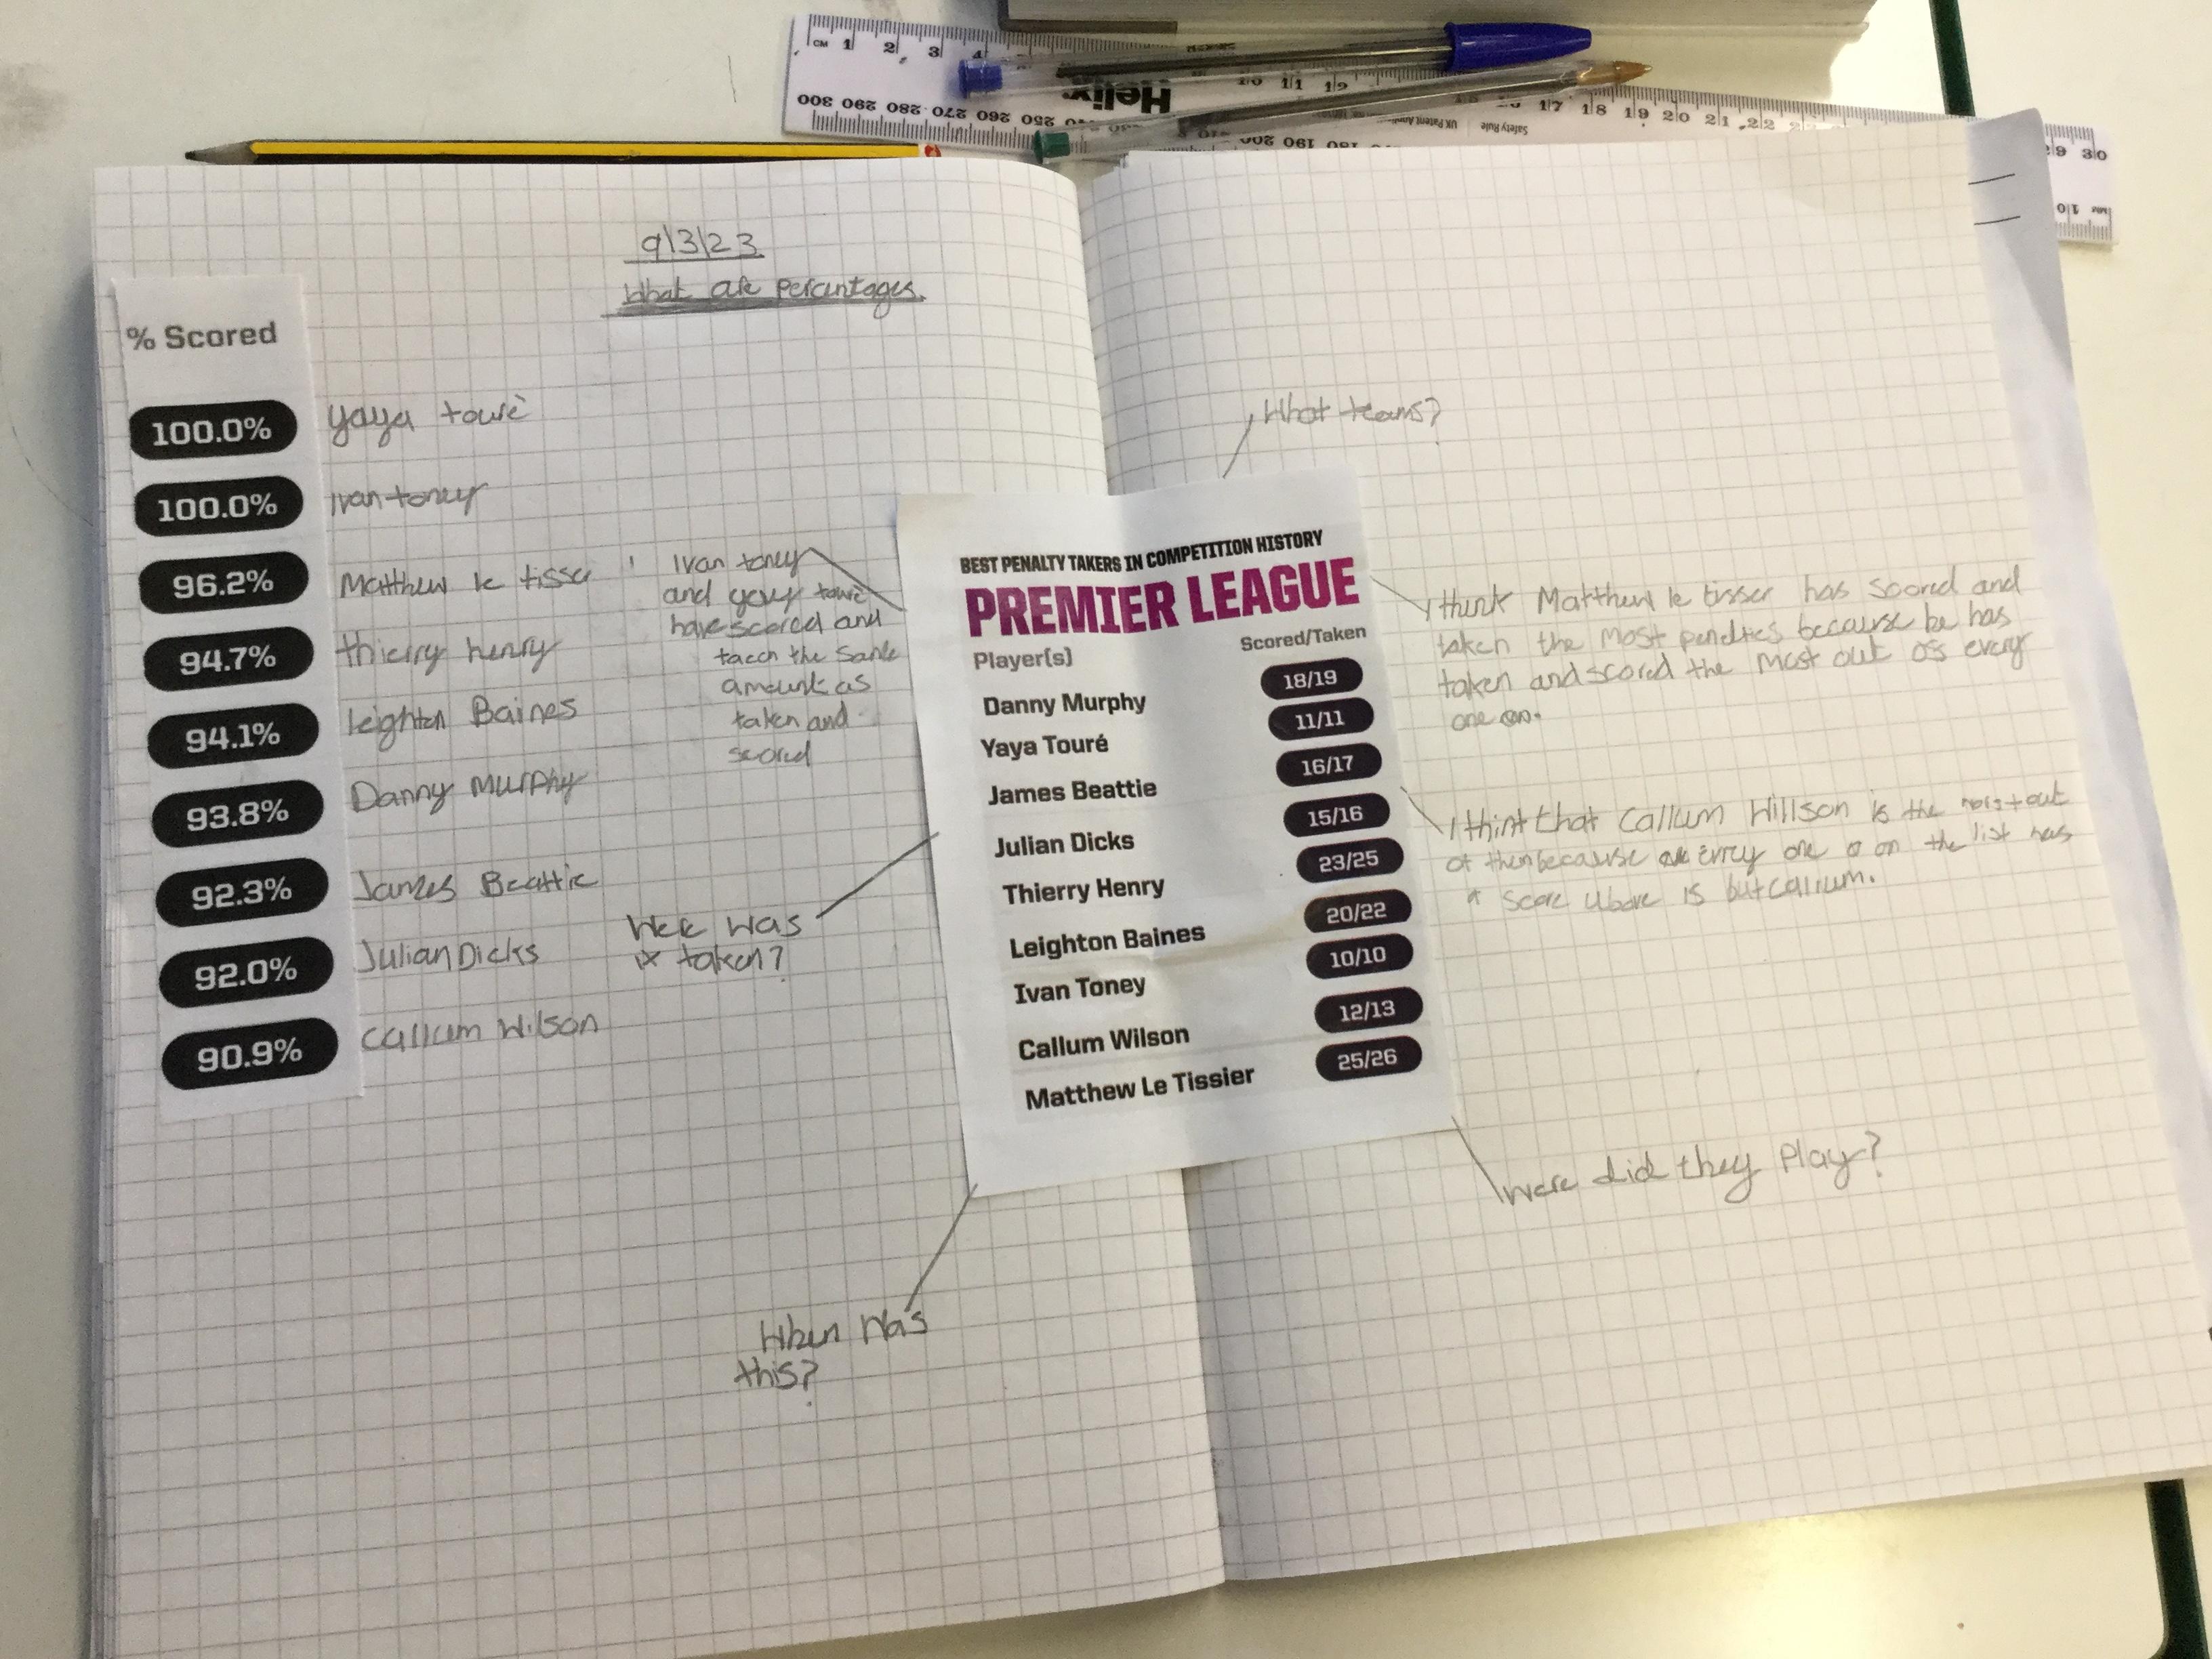 9/3/23
What are percentages.
% Scored
100.0% yaya touré
100.0% Ivan toney
96.2% Matthew le tisser
94.7% thierry henry
94.1% leighton Baines
93.8% Danny Murphy
92.3% James Beattie
92.0% Julian Dicks
90.9% Callum Wilson
Ivan toney
and yaya touré
have scored and
the same
amount as
taken and
scored
was
taken?
When was
this?
What teams?
BEST PENALTY TAKERS IN COMPETITION HISTORY
PREMIER LEAGUE
Player(s) Scored/Taken
Danny Murphy 18/19
Yaya Touré 11/11
James Beattie 16/17
Julian Dicks 15/16
Thierry Henry 23/25
Leighton Baines 20/22
Ivan Toney 10/10
Callum Wilson 12/13
Matthew Le Tissier 25/26
I think Matthew le tisser has scored and
taken the most because he has
taken and scored the most out every
one
I think that Callum Willson is the out
of because one on the list has
a score is but Callum.
Were did they Play?
Helix
CM 1 2 3 4 10 11 12 17 18 19 20 21 22 29 30
300 290 280 270 260 250 200 190 180
UK Patent
Safety Rule
MM 10